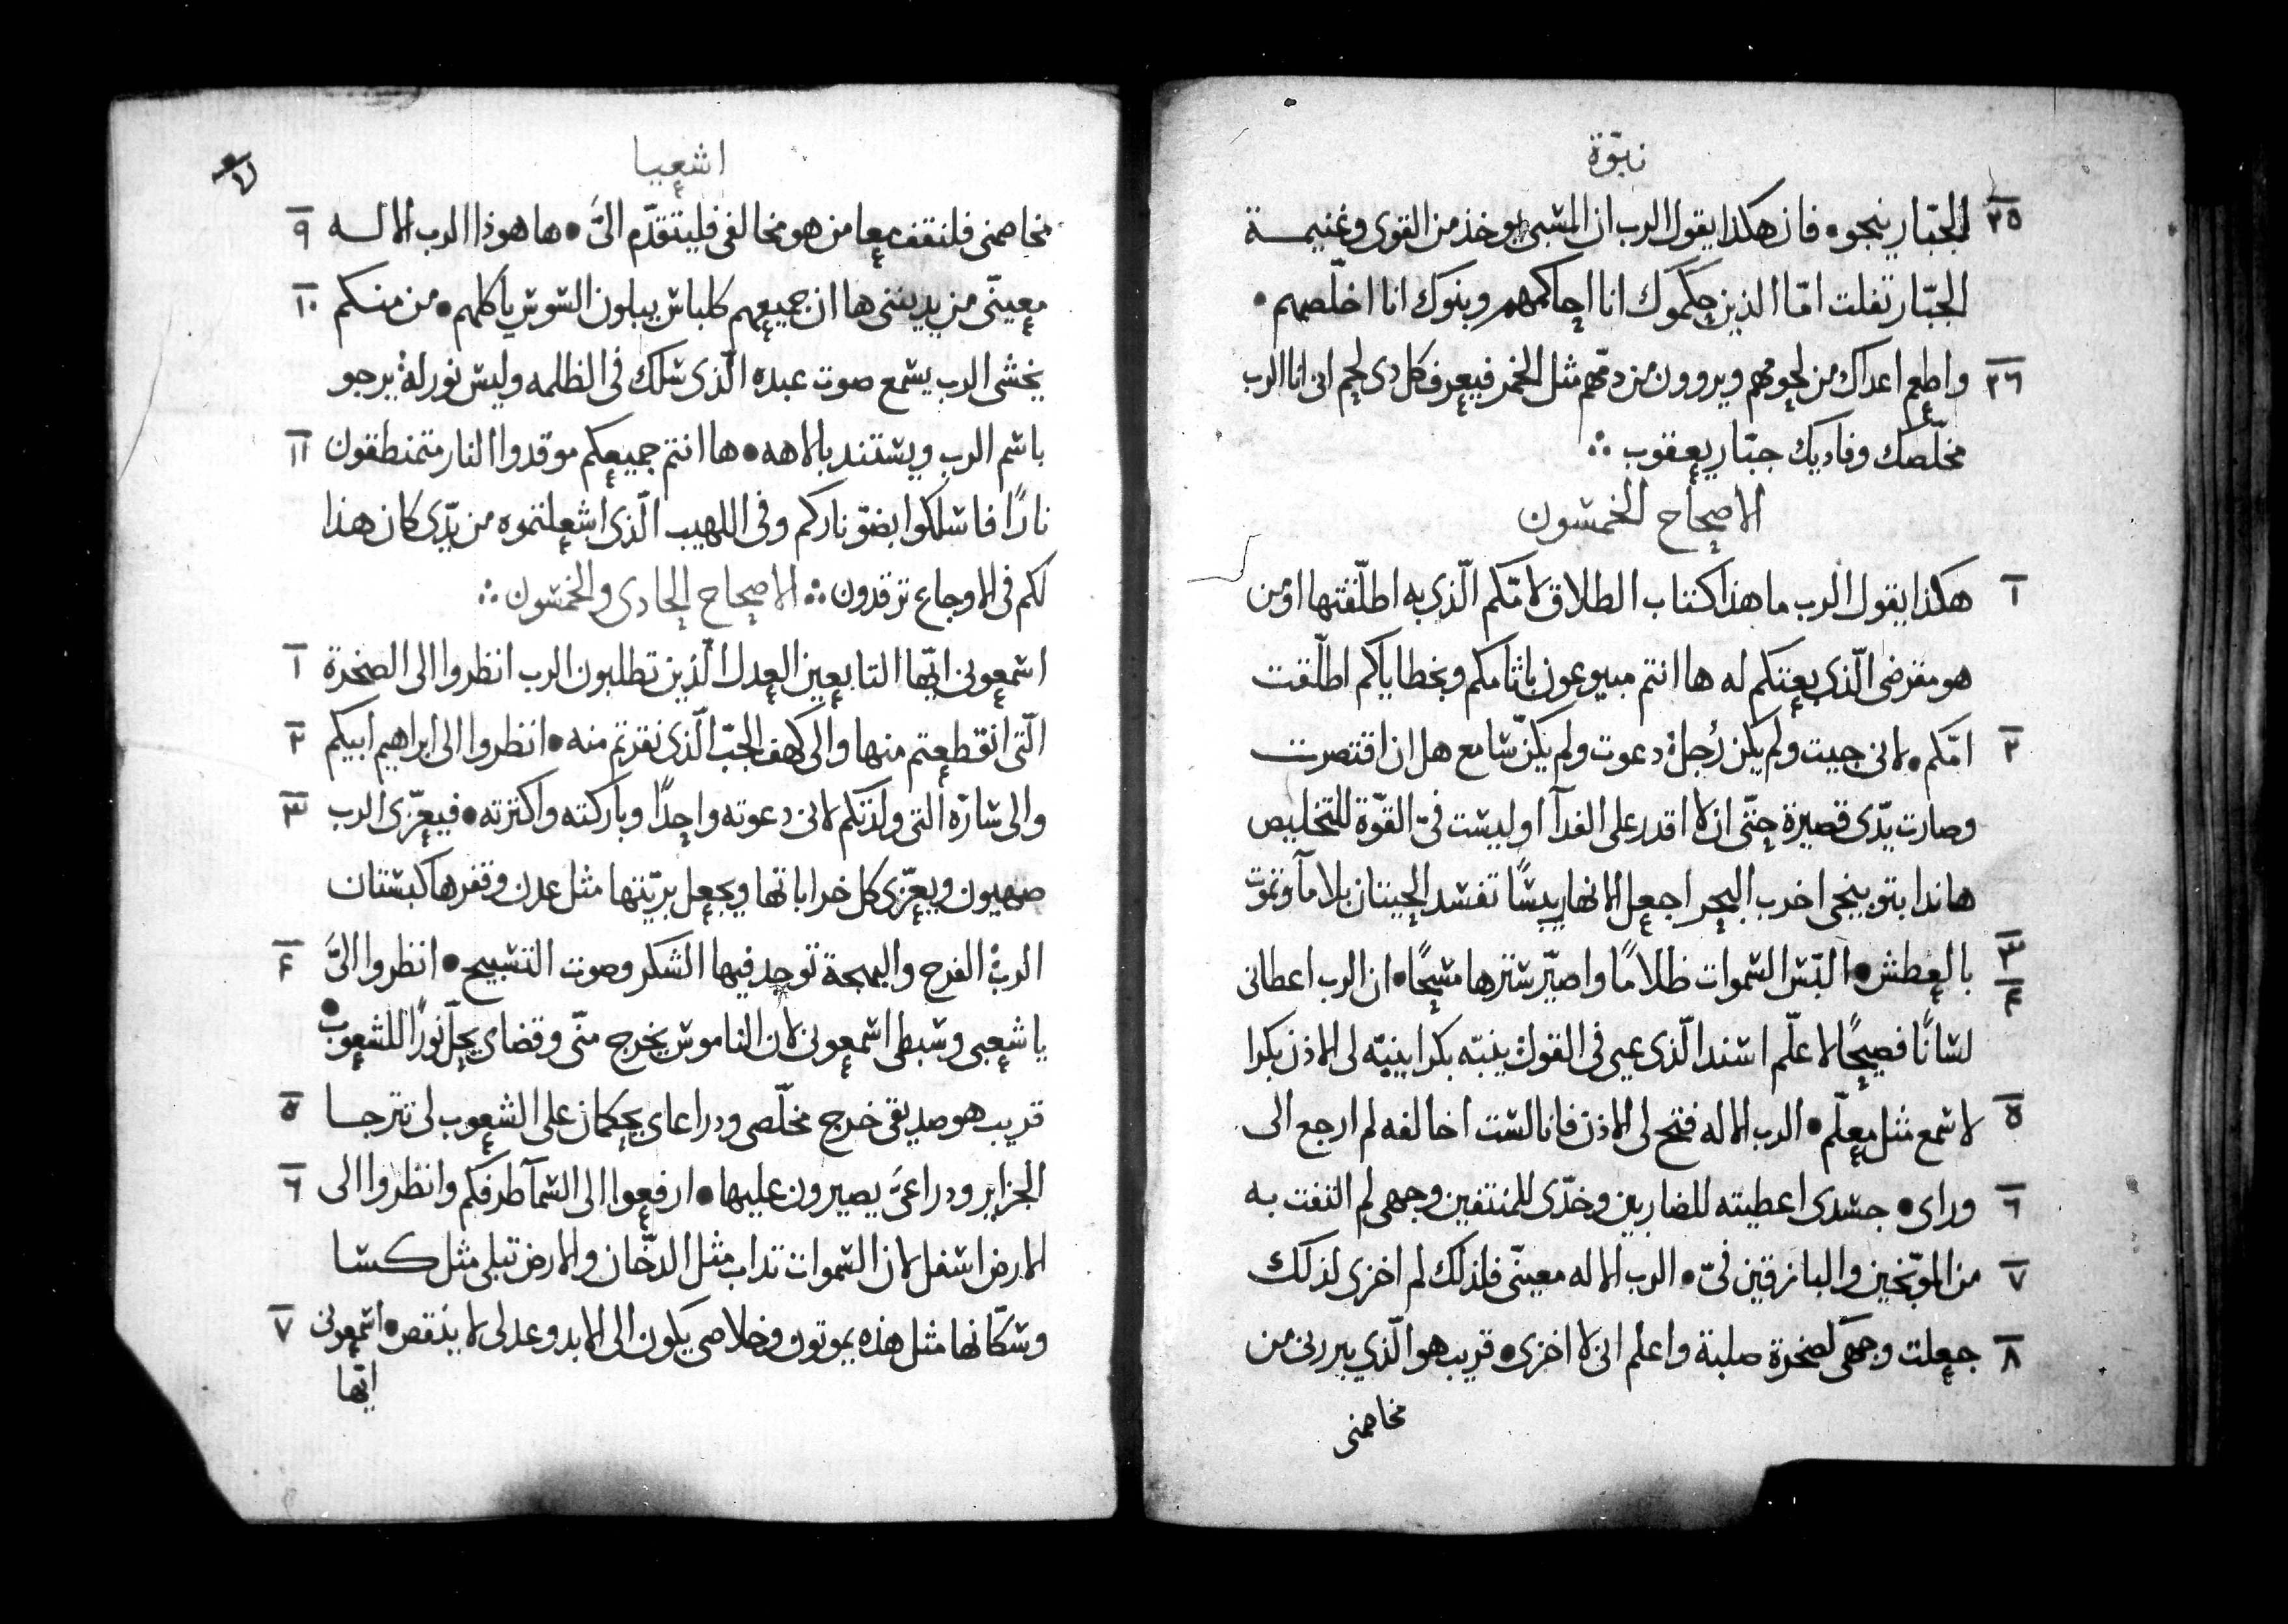 نبوّة
٢٥ الجبّار ينجو• فان هكذا يقول الرب ان المسبي يوخذ من القوى وغنيمة
الجبّار تفلت امّا الذين حكموك انا احاكمهم وبنوك انا اخلّصهم•
٢٦ واطعم اعداك من لحومهم ويروون من دمّهم مثل الخمر فيعرف كل دى لحم انى انا الرب
مخلّصك وفاديك جبّار يعقوب ∴
الاصحاح الخمسون
١ هكذا يقول الرب ما هذا كتاب الطلاق لامّكم الّذي به اطلّقتها او من
هو مقرضى الّذى بعتكم له ها انتم مبيوعون باثامكم وبخطاياكم اطلّقت
٢ امّكم• لانى جيت ولم يكن رُجلاً دعوت ولم يكن سامع هل ان اقتصرت
وصارت يدّى قصيرة حتّى ان لا اقدر على الفدآ او ليست فىّ القوّة للتخليص
هاندا بتوبيخى اخرب البحر اجعل الانهار يبسًا تفسد الحيتان بلا مآ وتموت
٣ ٤ بالعطش• البّس السموات ظلامًا واصيّر سترها مسحًا• ان الرب اعطانى
لسانًا فصيحًا لاعلّم اسند الّذى عيي فى القول ينبّه بكرا ينبّه لى الاذن بكرا
٥ لاسمع مثل معلّم• الرب الاله فتح لى الاذن فانا لست اخالفه لم ارجع الى
٦ وراى• جسدى اعطيته للضاربين وخدّى للمنتفين وجهى لم التفت به
٧ من الموبّخين والبازقين فىّ• الرب الاله معينّى فلذلك لم اخزى لذلك
٨ جعلت وجهى كصخرة صلبة واعلم انى لا اخزى• قريب هو الّذي يبررنى من
مخاصمنى
اشعيا
مخاصمنى فلنقف معا من هو مخالفى فليتقدّم الىَّ• ها هوذا الرب الاله ٩
معينّى من يديننى ها ان جميعهم كلباس يبلون السوس ياكلهم• من منكم ١٠
يخشى الرب يسمع صوت عبده الّذى سلك فى الظلمه وليس نور له يرجو
باسم الرب ويستند بالاهه• ها انتم جميعكم موقدوا النار متمنطقون ١١
نارًا فاسلكوا بضوّ ناركم وفى اللهيب الّذى اشعلتموه من يدّى كان هذا
لكم فى الاوجاع ترقدون ∴ الاصحاح الحادى والخمسون ∴
اسمعونى ايّها التابعين العدل الّذين تطلبون الرب انظروا الى الصخرة ١
الّتى انقطعتم منها والى كهف الجبّ الّذى نقرتم منه• انظروا الى ابراهيم ابيكم ٢
والى سارّة الّتى ولدتكم لانى دعوته واحدًا وباركته واكترته• فيعزّى الرب ٣
صهيون ويعزّى كل خراباتها ويجعل بريّتها مثل عدن وقفرها كبستان
الرب الفرح والبهجة توجد فيها الشكر وصوت التسبيح• انظروا الىَّ ٤
يا شعبى وسبطى اسمعونى لان الناموس يخرج منّى وقضاى يحلّ نورًا للشعوب•
قريب هو صديقى خرج مخلّصى ودراعاى يحكمان على الشعوب لى تترجا ٥
الجزاير ودراعىَّ يصيرون عليها• ارفعوا الى السمآ طرفكم وانظروا الى ٦
الارض اسفل لان السموات تداب مثل الدخّان والارض تبلى مثل كسا
وسكّانها مثل هذه يموتون وخلاصى يكون الى الابد وعدلى لا ينقص• اسمعونى ٧
ايّها